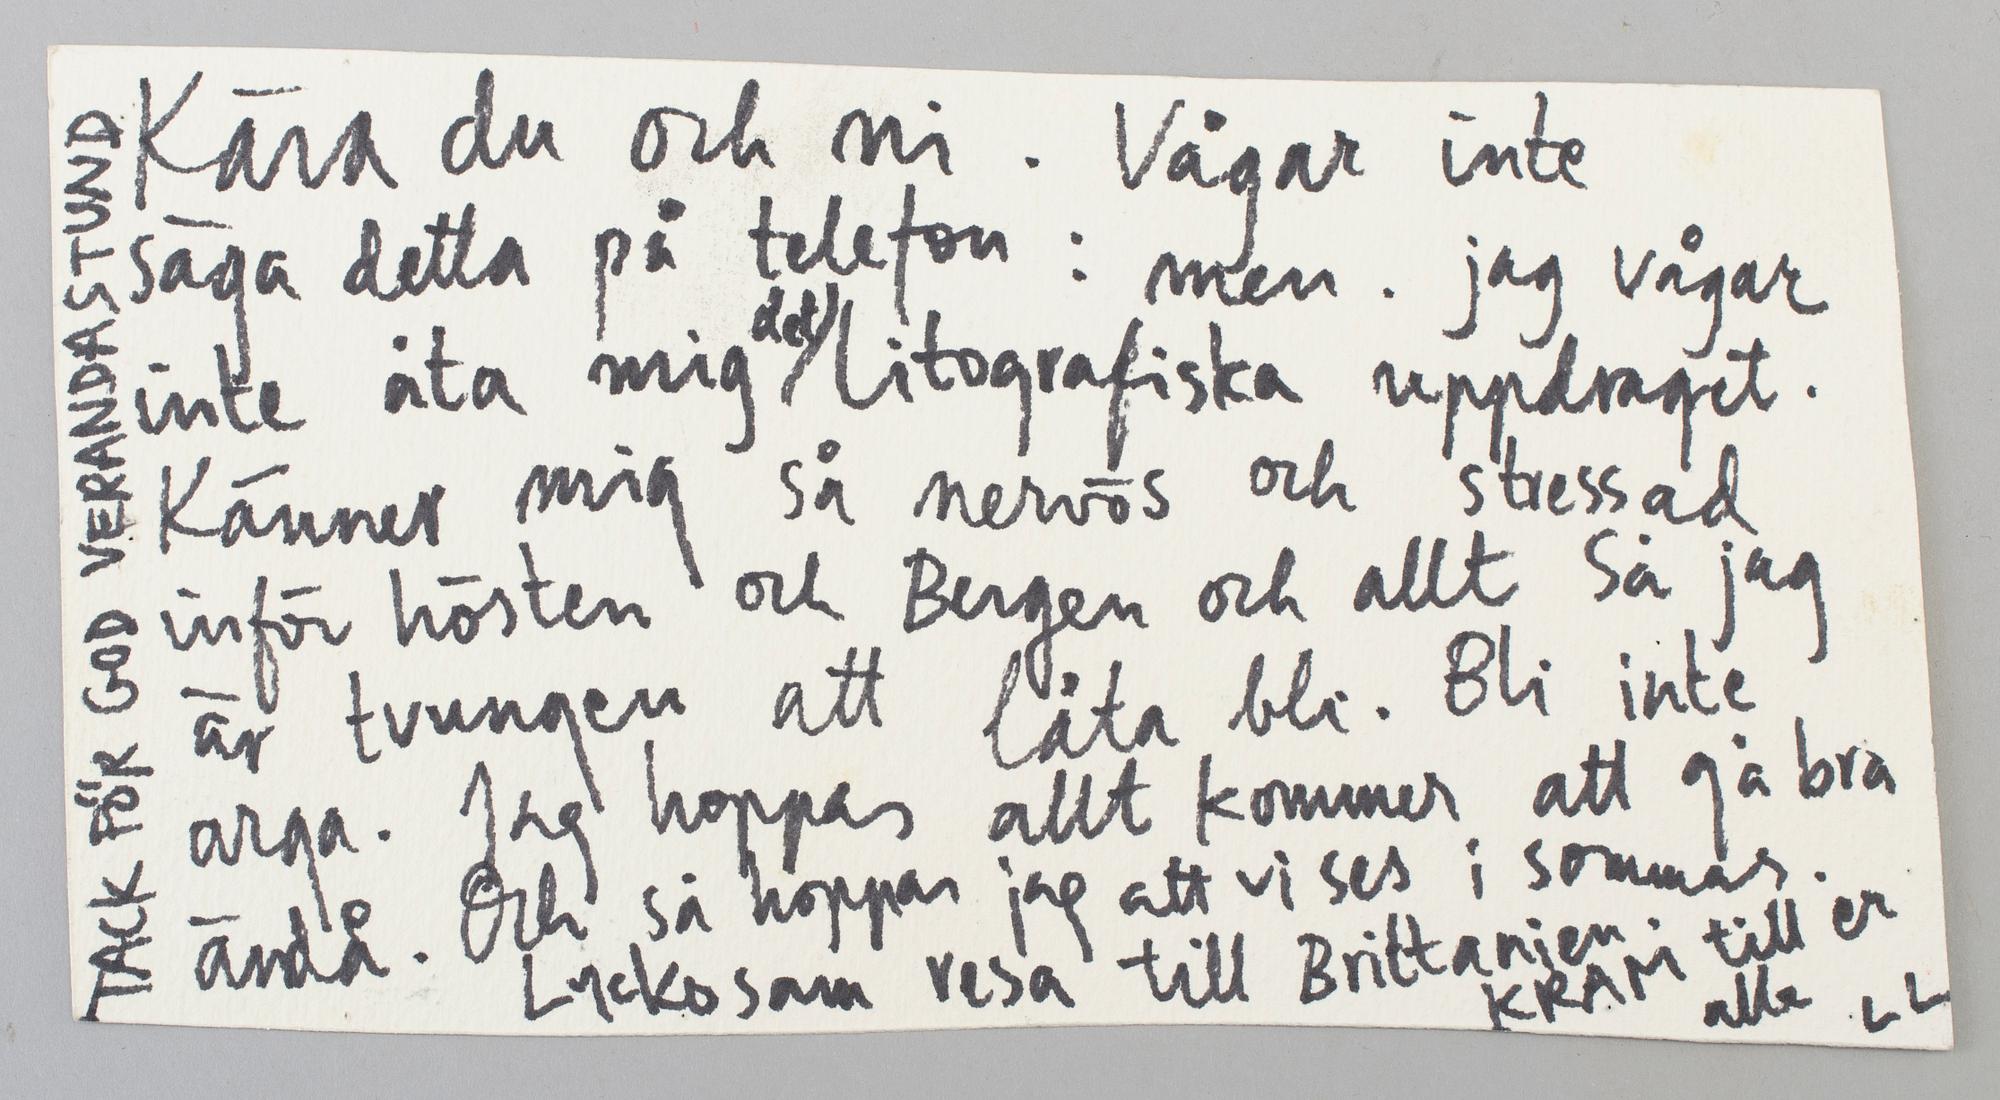 Kära du och ni. Vågar inte
säga detta på telefon: men. jag vågar
inte åta mig det litografiska uppdraget.
Känner mig så nervös och stressad
inför hösten och Bergen och allt Så jag
är tvungen att låta bli. Bli inte
arga. Jag hoppas allt kommer att gå bra
ändå. Och så hoppas jag att vi ses i sommar.
Lyckosam resa till Brittanien. KRAM till er
alla LL
TACK FÖR GOD VERANDASTUND